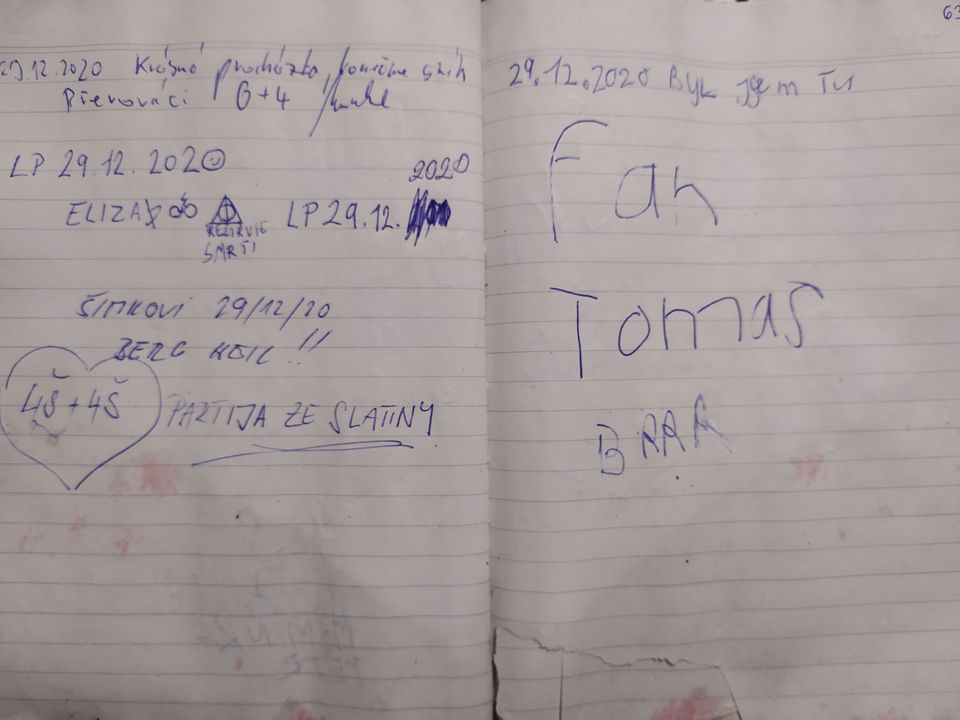 29.12.2020 Krásná procházka, konečně sníh
Převováci 6+4
LP 29.12.2020
2020
ELIZA
LP 29.12.
RELIKVIE
SMRTI
ŠIMKOVI 29/12/20
BERG HEIL!!
4Š+4Š
PARTIJA ZE SLATINY
63
29.12.2020 Byl jsem Tu
Fan
Tomas
BRRR